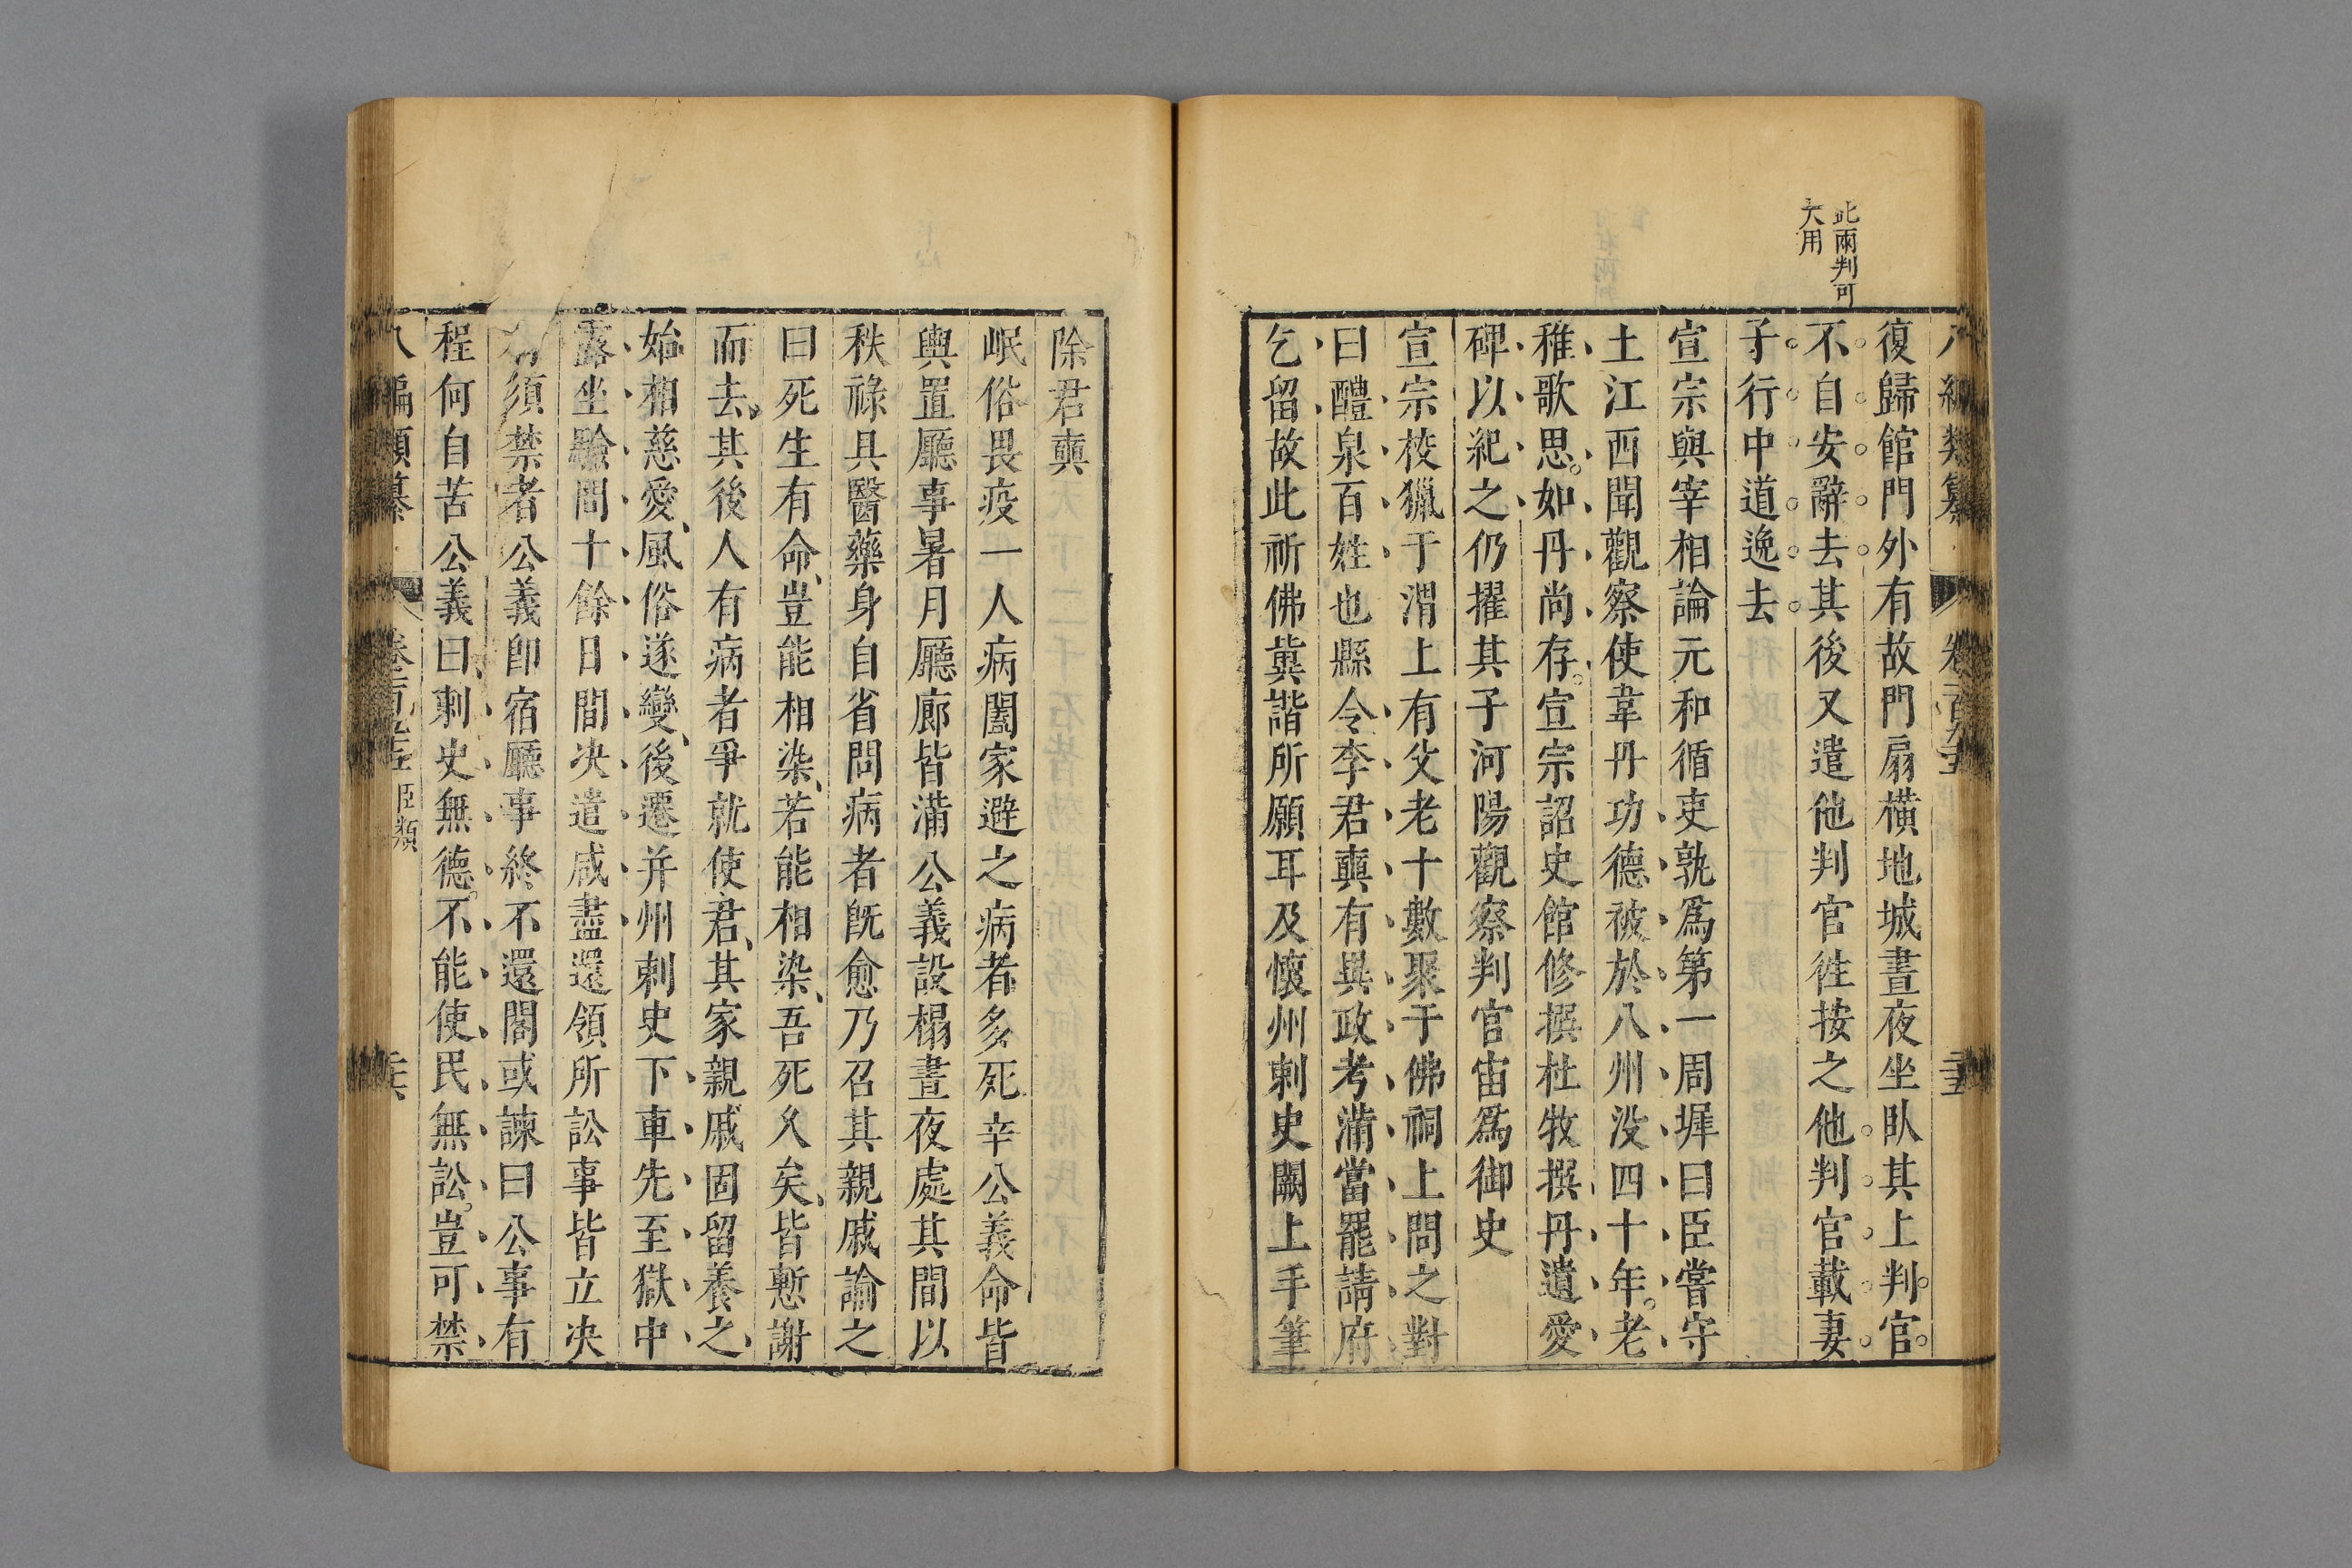 此兩判可
大用
八編類纂 卷一百九十五 二十五
復歸館門外有故門扇橫地城晝夜坐臥其上判官
不自安辭去其後又遣他判官徃按之他判官載妻
子行中道逸去
宣宗與宰相論元和循吏孰爲第一周墀曰臣嘗守
土江西聞觀察使韋丹功德被於八州没四十年老
稚歌思如丹尚存宣宗詔史館修撰杜牧撰丹遺愛
碑以紀之仍擢其子河陽觀察判官宙爲御史
宣宗校獵于渭上有父老十數聚于佛祠上問之對
曰醴泉百姓也縣令李君奭有異政考滿當罷請府
乞留故此祈佛冀諧所願耳及懷州刺史闕上手筆
除君奭
岷俗畏疫一人病闔家避之病者多死辛公義命皆
輿置廳事暑月廳廊皆滿公義設榻晝夜處其間以
秩祿具醫藥身自省問病者旣愈乃召其親戚諭之
曰死生有命豈能相染若能相染吾死久矣皆慙謝
而去其後人有病者爭就使君其家親戚固留養之
始相慈愛風俗遂變後遷并州刺史下車先至獄中
露坐驗問十餘日間决遣咸盡還領所訟事皆立决
須禁者公義卽宿廳事終不還閣或諫曰公事有
程何自苦公義曰刺史無德不能使民無訟豈可禁
八編類纂 卷 臣類